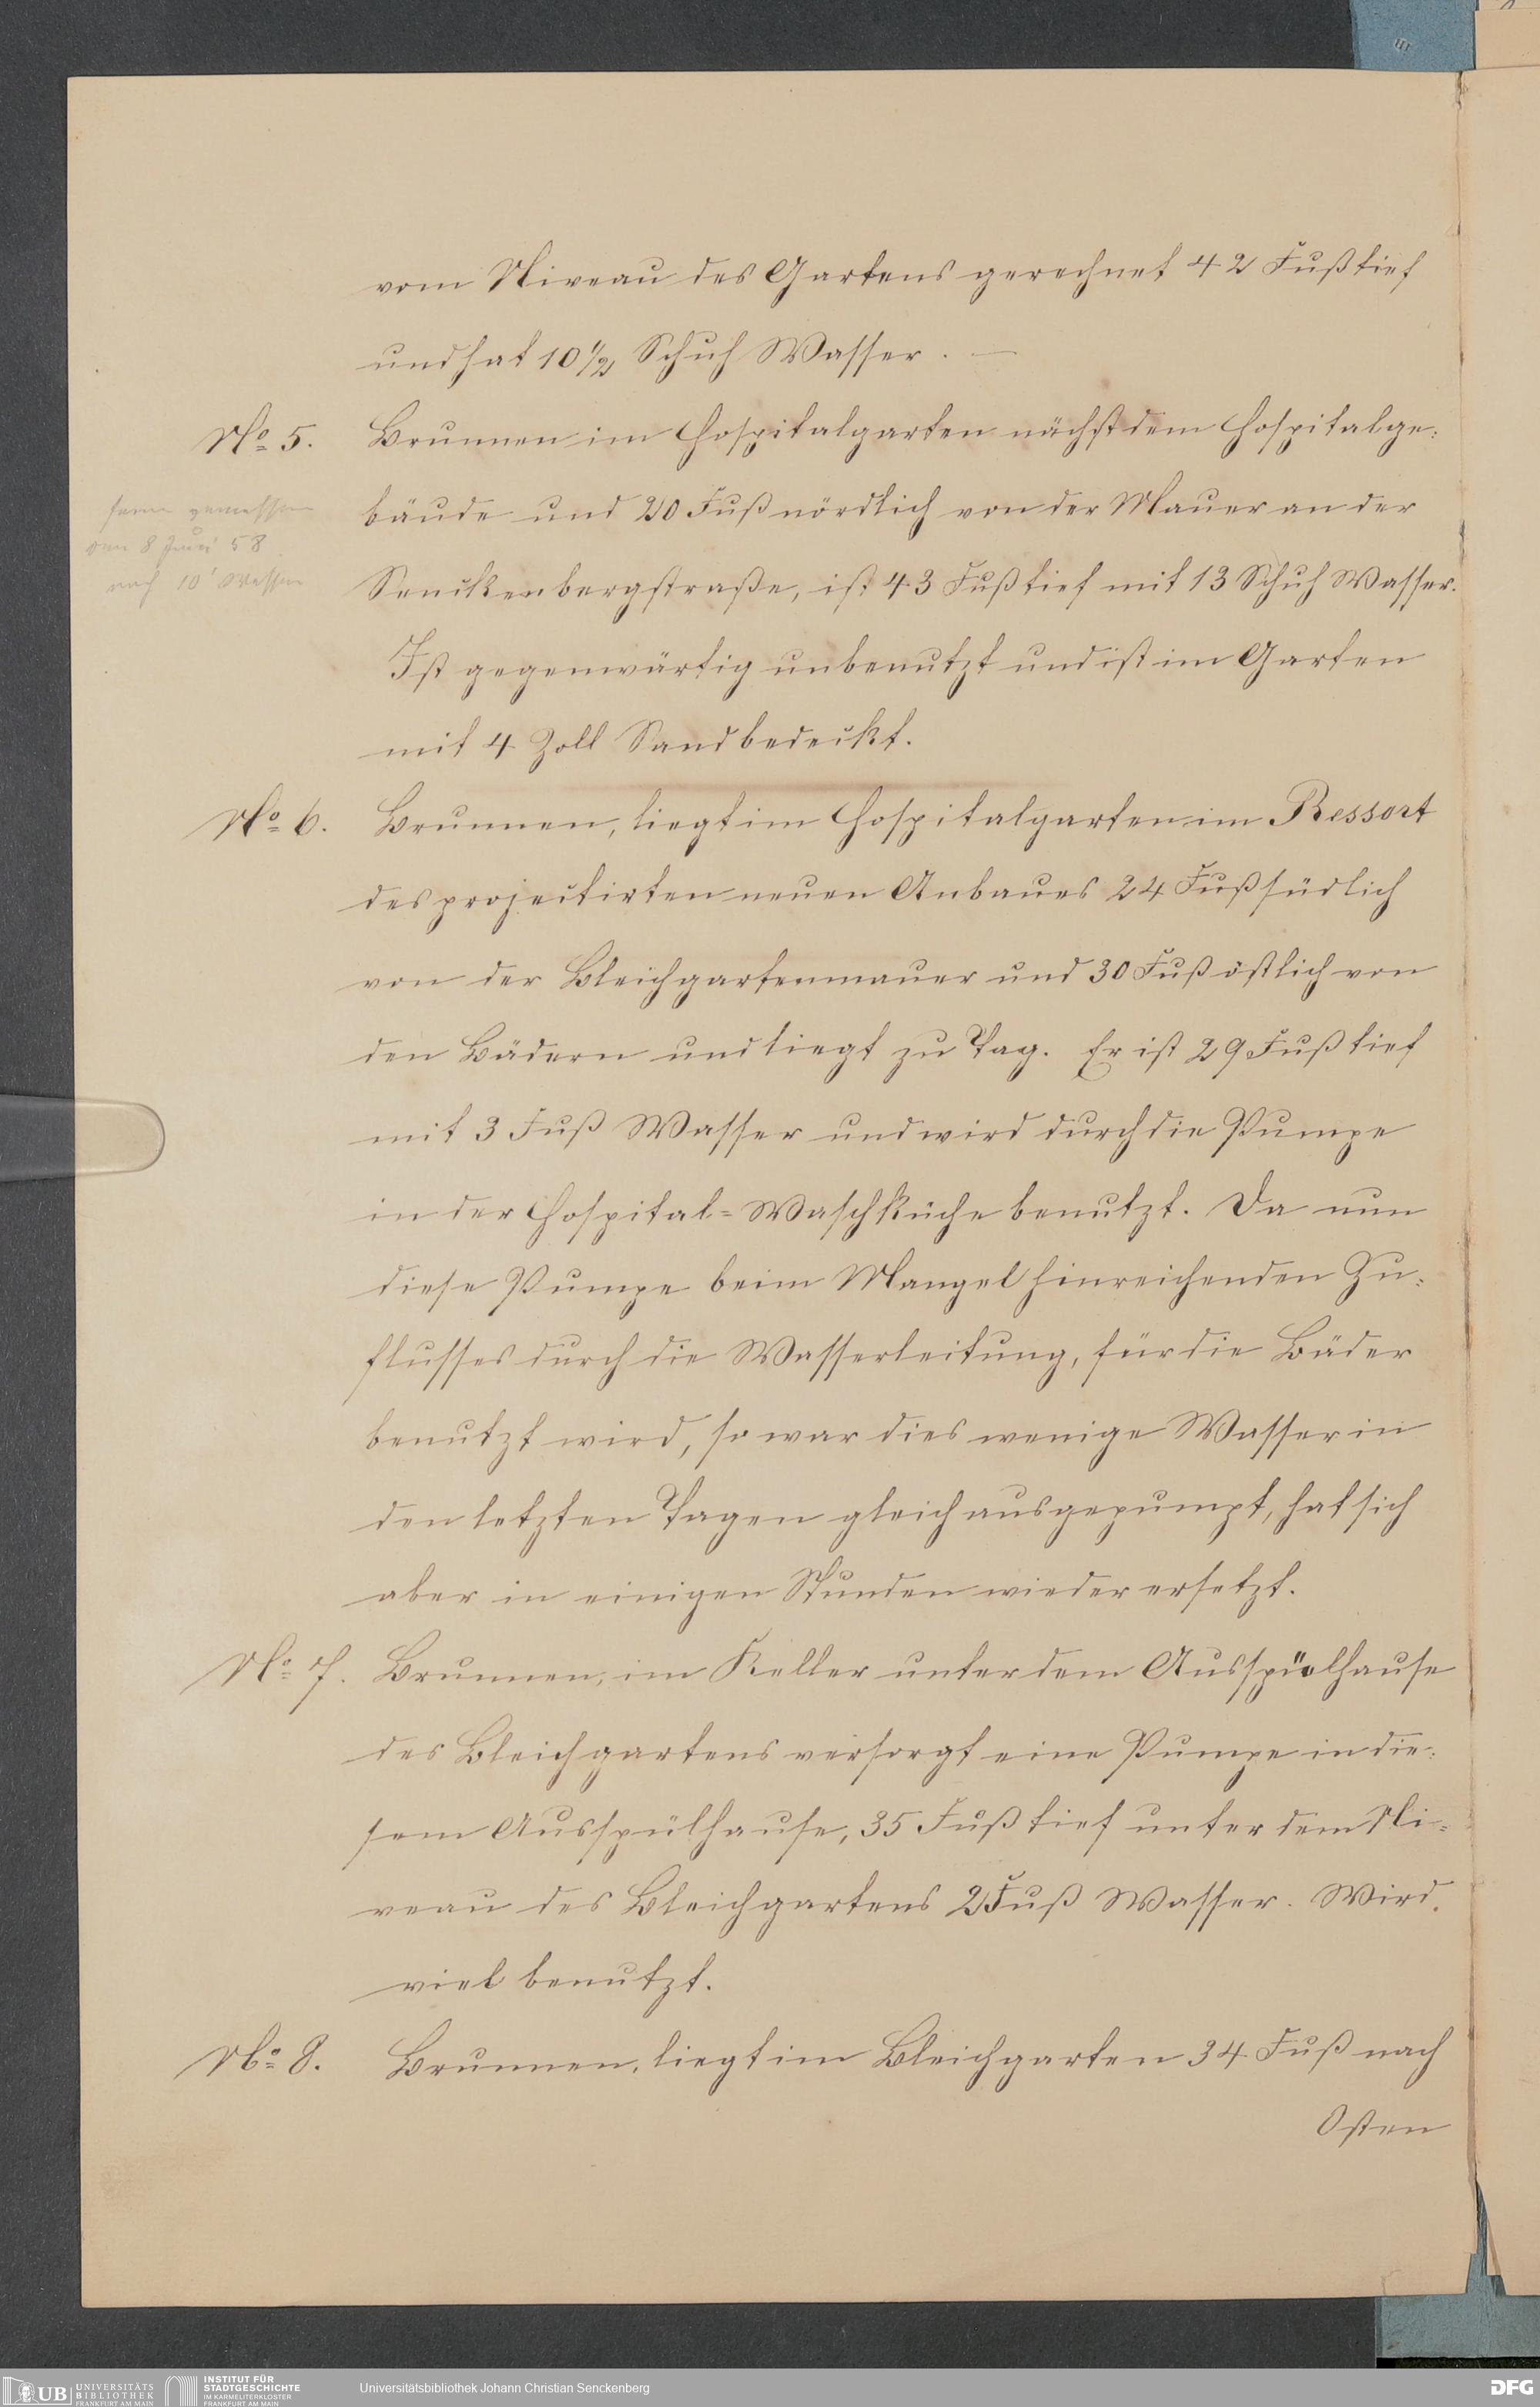 vom Niveau des Gartens gerechnet 42 Fuß tief
und hat 10 1/2 Schuh Wasser. —
No 5. Brunnen im Hospitalgarten nächst dem Hospitalge:
bäude und 20 Fuß nördlich von der Mauer an der
gemessen
den 8 Juni 58
noch 10' Wasser
Senckenbergstraße, ist 43 Fuß tief mit 13 Schuh Wasser.
Ist gegenwärtig unbenutzt und ist im Garten
mit 4 Zoll Sand bedeckt.
No 6. Brunnen, liegt im Hospitalgarten im Ressort
des projectirten neuen Anbaues 24 Fuß südlich
von der Bleichgartenmauer und 30 Fuß östlich von
den Bädern und liegt zu Tag. Er ist 29 Fuß tief
mit 3 Fuß Wasser und wird durch die Pumpe
in der Hospital=Waschküche benutzt. Da nun
diese Pumpe beim Mangel hinreichenden Zu:
flusses durch die Wasserleitung, für die Bäder
benutzt wird, so war dies wenige Wasser in
den letzten Tagen gleich ausgepumpt, hat sich
aber in einigen Stunden wieder ersetzt.
No 7. Brunnen, im Keller unter dem Ausspülhause
des Bleichgartens versorgt eine Pumpe in die:
sem Ausspülhause, 35 Fuß tief unter dem Ni=
veau des Bleichgartens 2 Fuß Wasser. Wird
viel benutzt.
No 8. Brunnen, liegt im Bleichgarten 34 Fuß nach
Osten
UB UNIVERSITÄTS
BIBLIOTHEK
FRANKFURT AM MAIN
INSTITUT FÜR
STADTGESCHICHTE
IM KARMELITERKLOSTER
FRANKFURT AM MAIN
Universitätsbibliothek Johann Christian Senckenberg
DFG